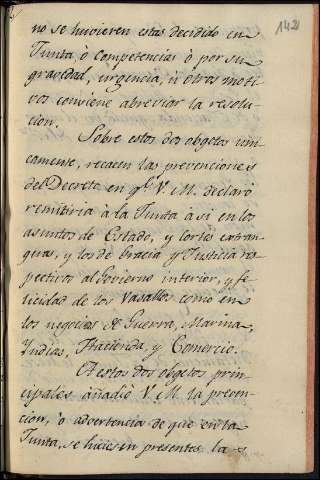 142
no se huvieren estas decidido en
Junta ò Competencias ò por su
gravedad, urgencia, ù otros moti-
vos conviene abreviar la resolu-
cion.
Sobre estos dos obgetos uni-
camente, recaen las prevenciones
del Decreto en q.e V. M. declarò
remitiria à la Junta à si en los
asuntos de Estado, y Cortes extran-
geras, y los de Gracia y Justicia res-
pectivos al Govierno interior, y fe-
licidad de los Vasallos como en
los negocios de Guerra, Marina,
Yndias, Hacienda, y Comercio.
A estos dos obgetos prin-
cipales añadiò V. M. la preven-
cion, ò advertencia de que en la
Junta, se hiciesen presentes la s